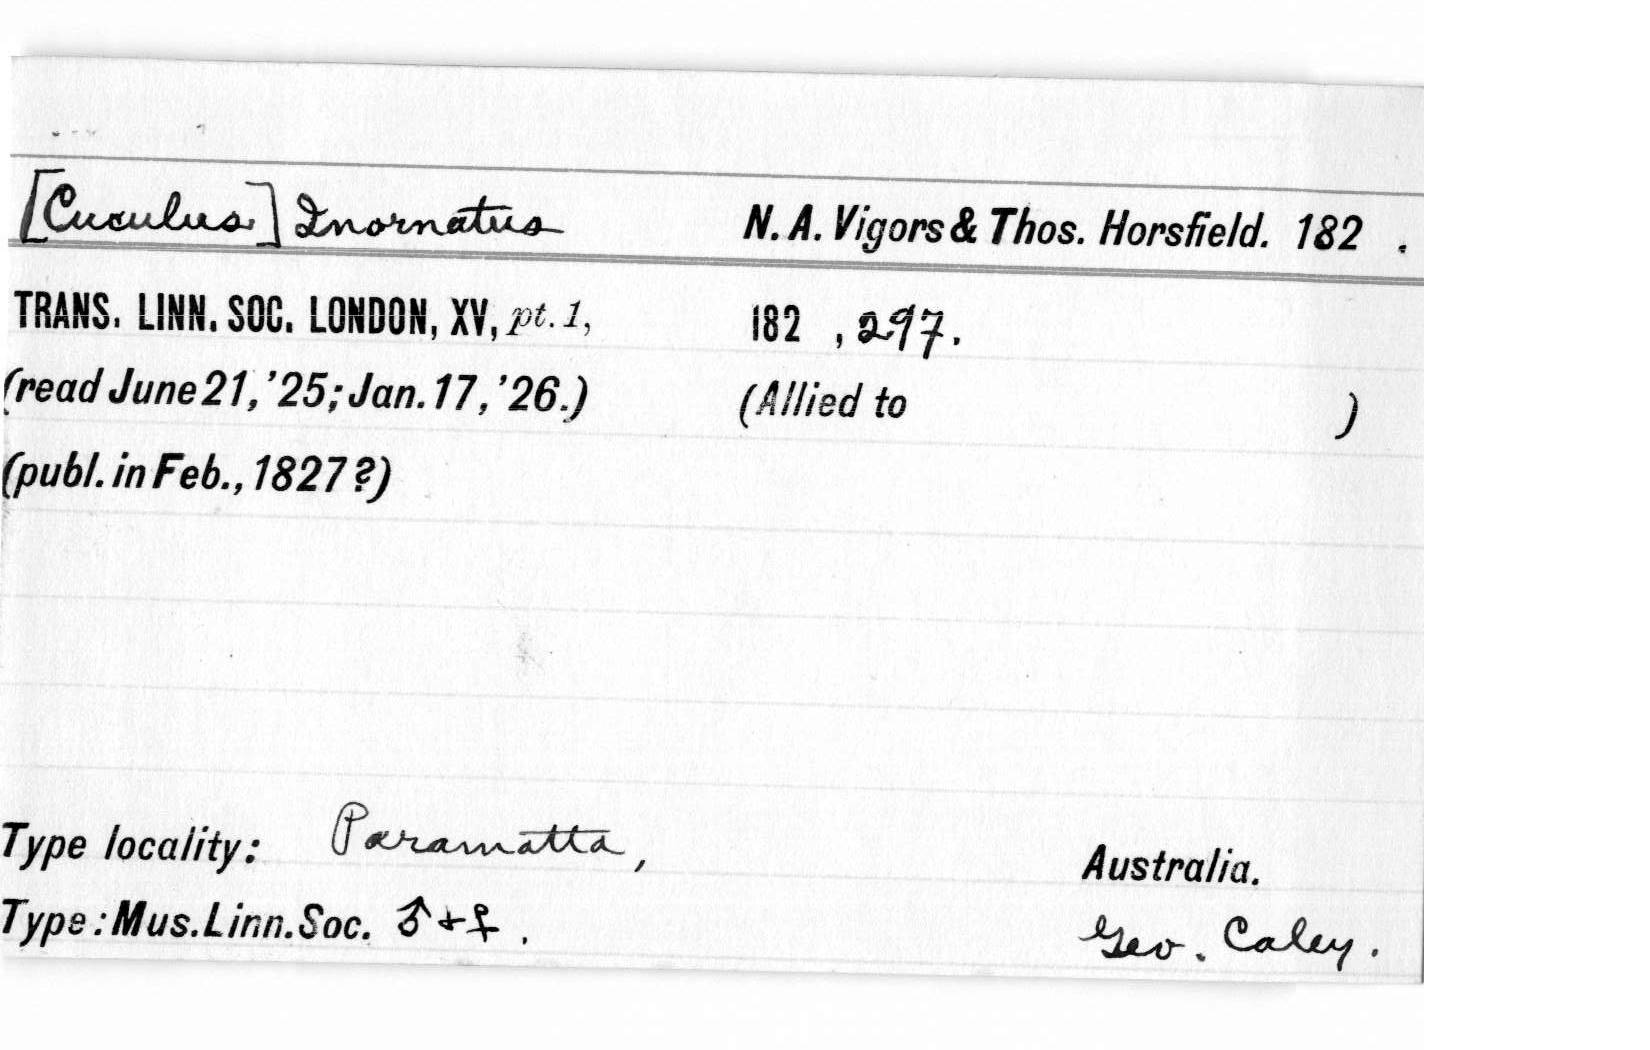 [Cuculus] Inornatus N. A. Vigors & Thos. Horsfield. 182 .
TRANS. LINN. SOC. LONDON, XV, pt. 1, 182 , 297.
(read June 21, '25; Jan. 17, '26.) (Allied to )
(publ. in Feb., 1827?)
Type locality: Paramatta, Australia.
Type: Mus. Linn. Soc. ♂ + ♀ . Geo. Caley.